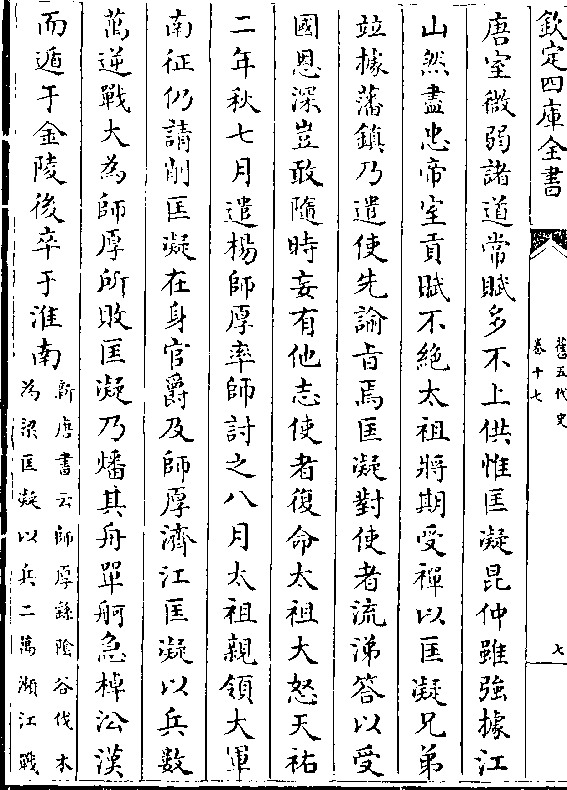 欽定四庫全書
舊五代史
卷十七
七
唐室微弱諸道常賦多不上供惟匡凝昆仲雖強據江
山然盡忠帝室貢賦不絶太祖將期受禪以匡凝兄弟
竝據藩鎮乃遣使先諭旨焉匡凝對使者流涕答以受
國恩深豈敢隨時妄有他志使者復命太祖大怒天祐
二年秋七月遣楊師厚率師討之八月太祖親領大軍
南征仍請削匡凝在身官爵及師厚濟江匡凝以兵數
萬逆戰大為師厚所敗匡凝乃燔其舟單舸急棹沿漢
而遁于金陵後卒于淮南
新唐書云師厚繇陰谷伐木
為梁匡凝以兵二萬瀕江戰